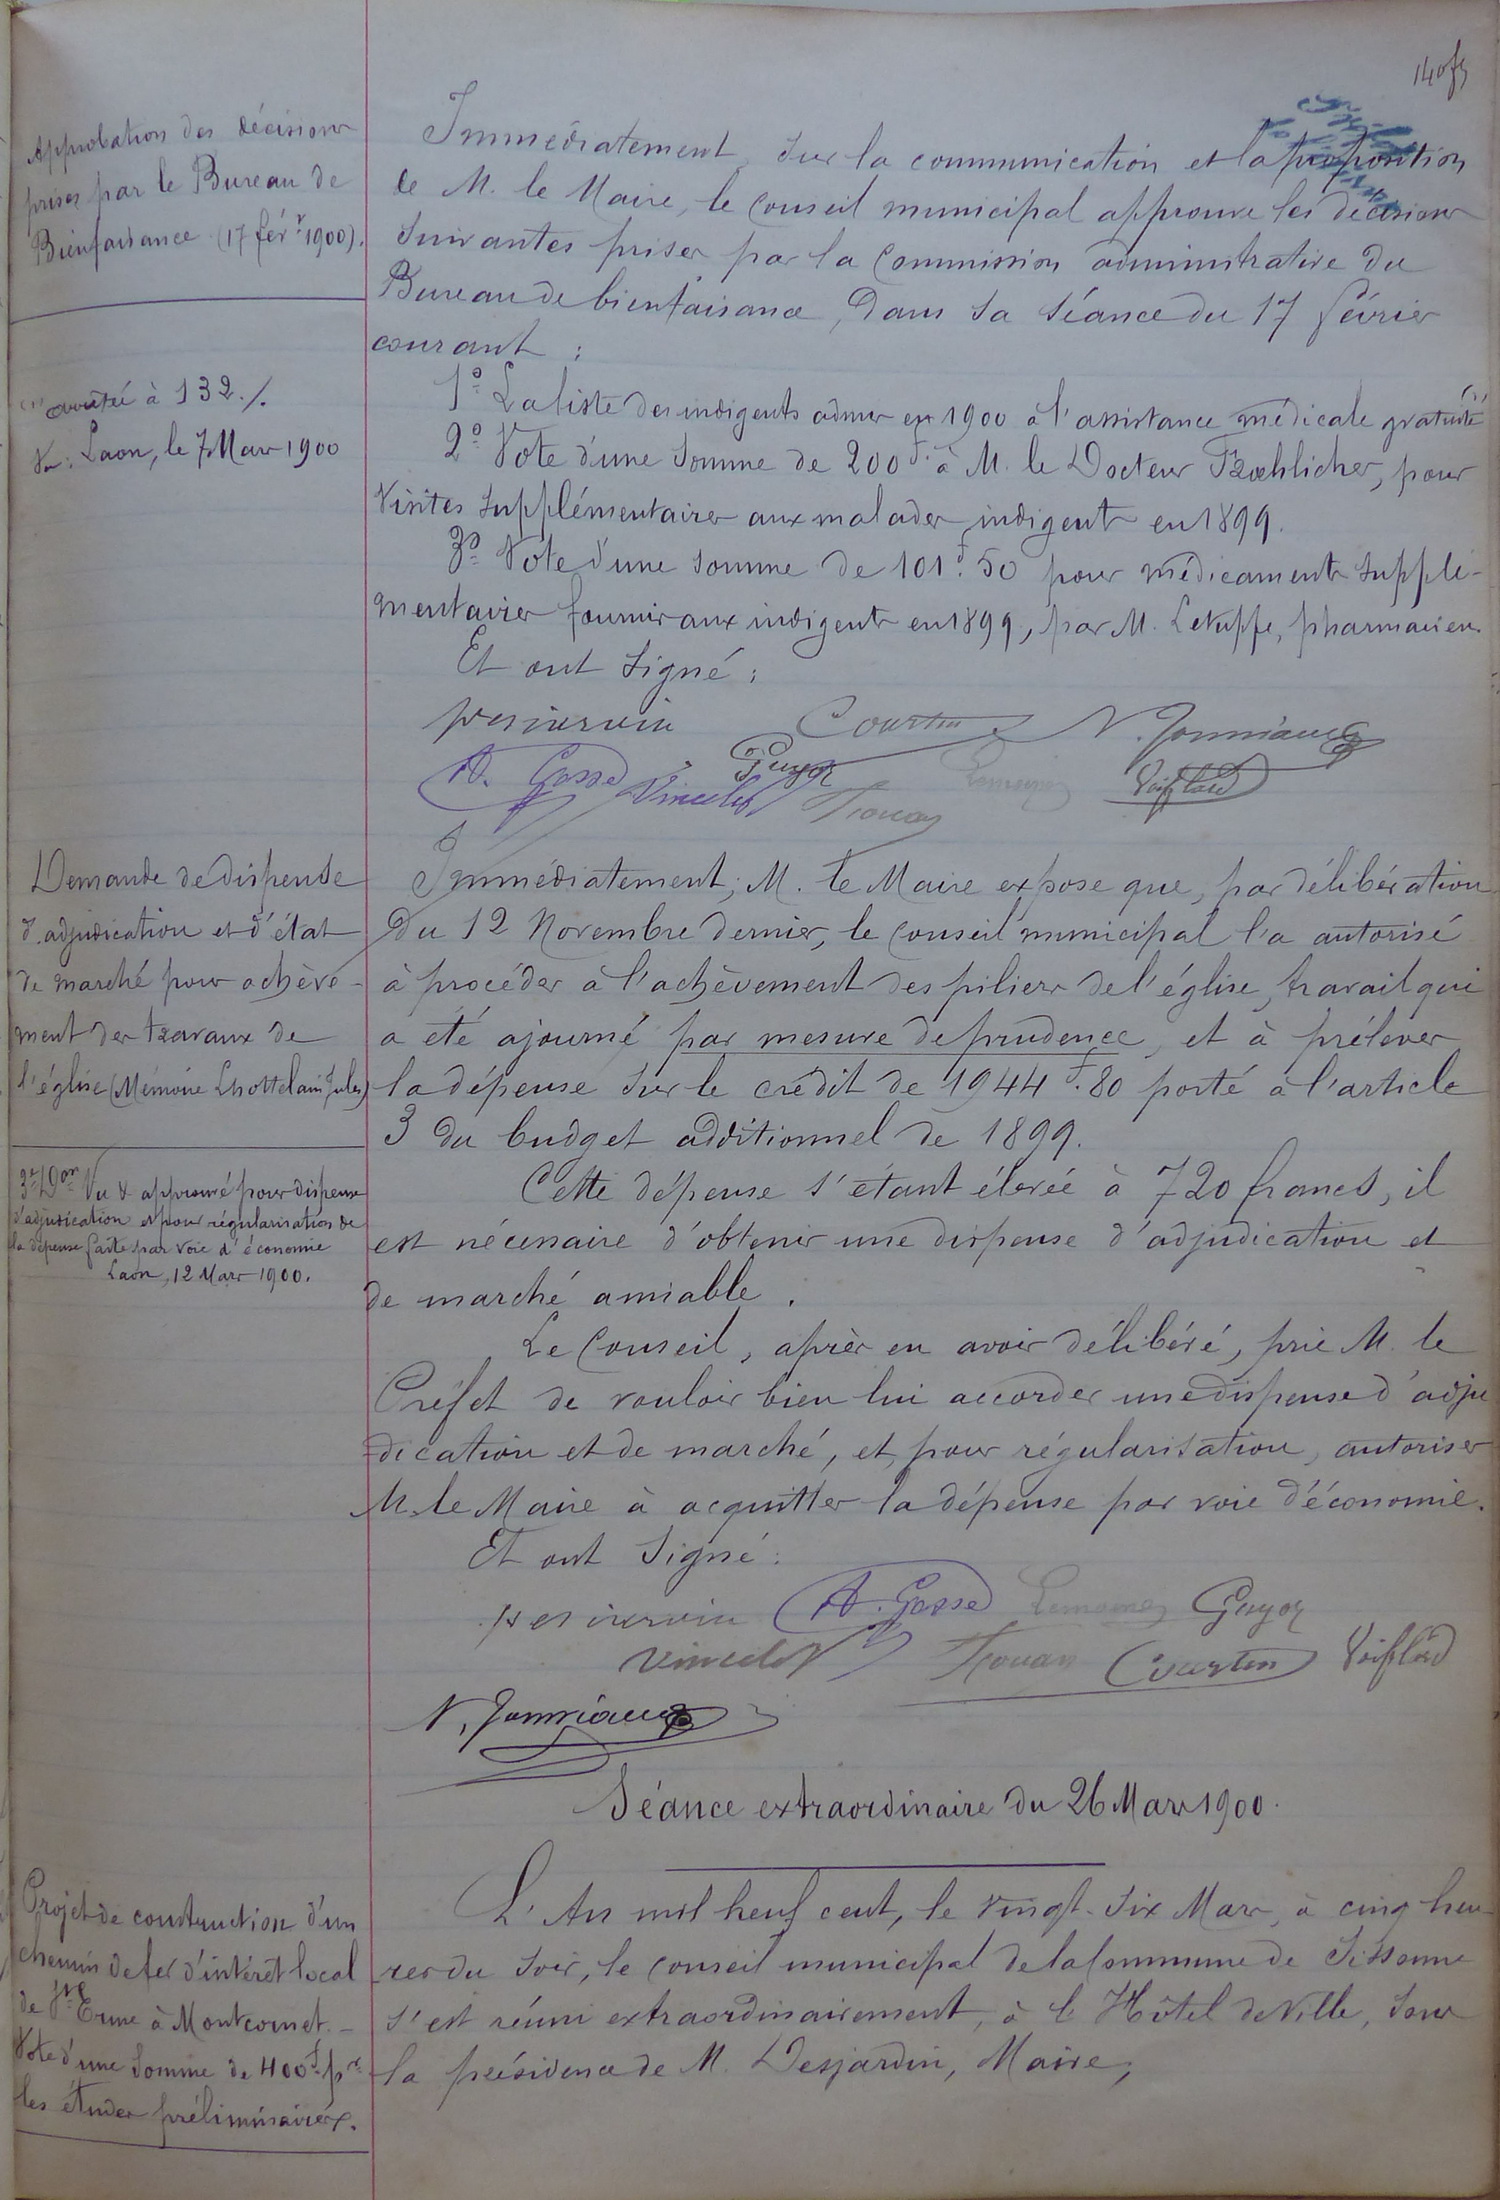 Approbation des décisions
prises par le Bureau de
Bienfaisance (17 févr 1900).
Immédiatement, sur la communication et la proposition
de M. le Maire, le Conseil municipal approuve les décisions
suivantes prises par la Commission administrative du
Bureau de bienfaisance, dans sa séance du 17 février
courant :
(1) arrêtée à 132./.
Vu : Laon, le 7 Mars 1900
1º La liste des indigents admis en 1900 à l'assistance médicale gratuite (1)
2º Vote d'une somme de 200 f. à M. le Docteur Froehlicher, pour
visites supplémentaires aux malades indigents en 1899.
3º Vote d'une somme de 101 f. 50 pour médicaments supplé-
mentaires fournis aux indigents en 1899, par M. Letuppe, pharmacien.
Et ont signé :
Courtin N. Jonniaux
A. Gosse Vincelot Guyot Lemoine Voiflard
Trouan
Demande de dispense
d'adjudication et d'état
de marché pour achève-
ment des travaux de
l'église (Mémoire Lhottelain Jules)
3e Don Vu & approuvé pour dispense
d'adjudication et pour régularisation de
la dépense faite par voie d'économie
Laon, 12 Mars 1900.
Immédiatement, M. le Maire expose que, par délibération
du 12 Novembre dernier, le Conseil municipal l'a autorisé
à procéder à l'achèvement des piliers de l'église, travail qui
a été ajourné par mesure de prudence, et à prélever
la dépense sur le crédit de 1944 f. 80 porté à l'article
3 du budget additionnel de 1899.
Cette dépense s'étant élevée à 720 francs, il
est nécessaire d'obtenir une dispense d'adjudication et
de marché amiable.
Le Conseil, après en avoir délibéré, prie M. le
Préfet de vouloir bien lui accorder une dispense d'adju
dication et de marché, et, pour régularisation, autoriser
M. le Maire à acquitter la dépense par voie d'économie.
Et ont signé :
A. Gosse Lemoine Guyot
Vincelot Trouan Courtin Voiflard
N. Jonniaux
Séance extraordinaire du 26 Mars 1900.
Projet de construction d'un
chemin de fer d'intérêt local
de Ste Erme à Montcornet. -
Vote d'une somme de 400 f. pr
les études préliminaires.
L'An mil neuf cent, le vingt-six Mars, à cinq heu-
res du soir, le Conseil municipal de la Commune de Sissonne
s'est réuni extraordinairement, à l'Hôtel de Ville, sous
la présidence de M. Desjardin, Maire,